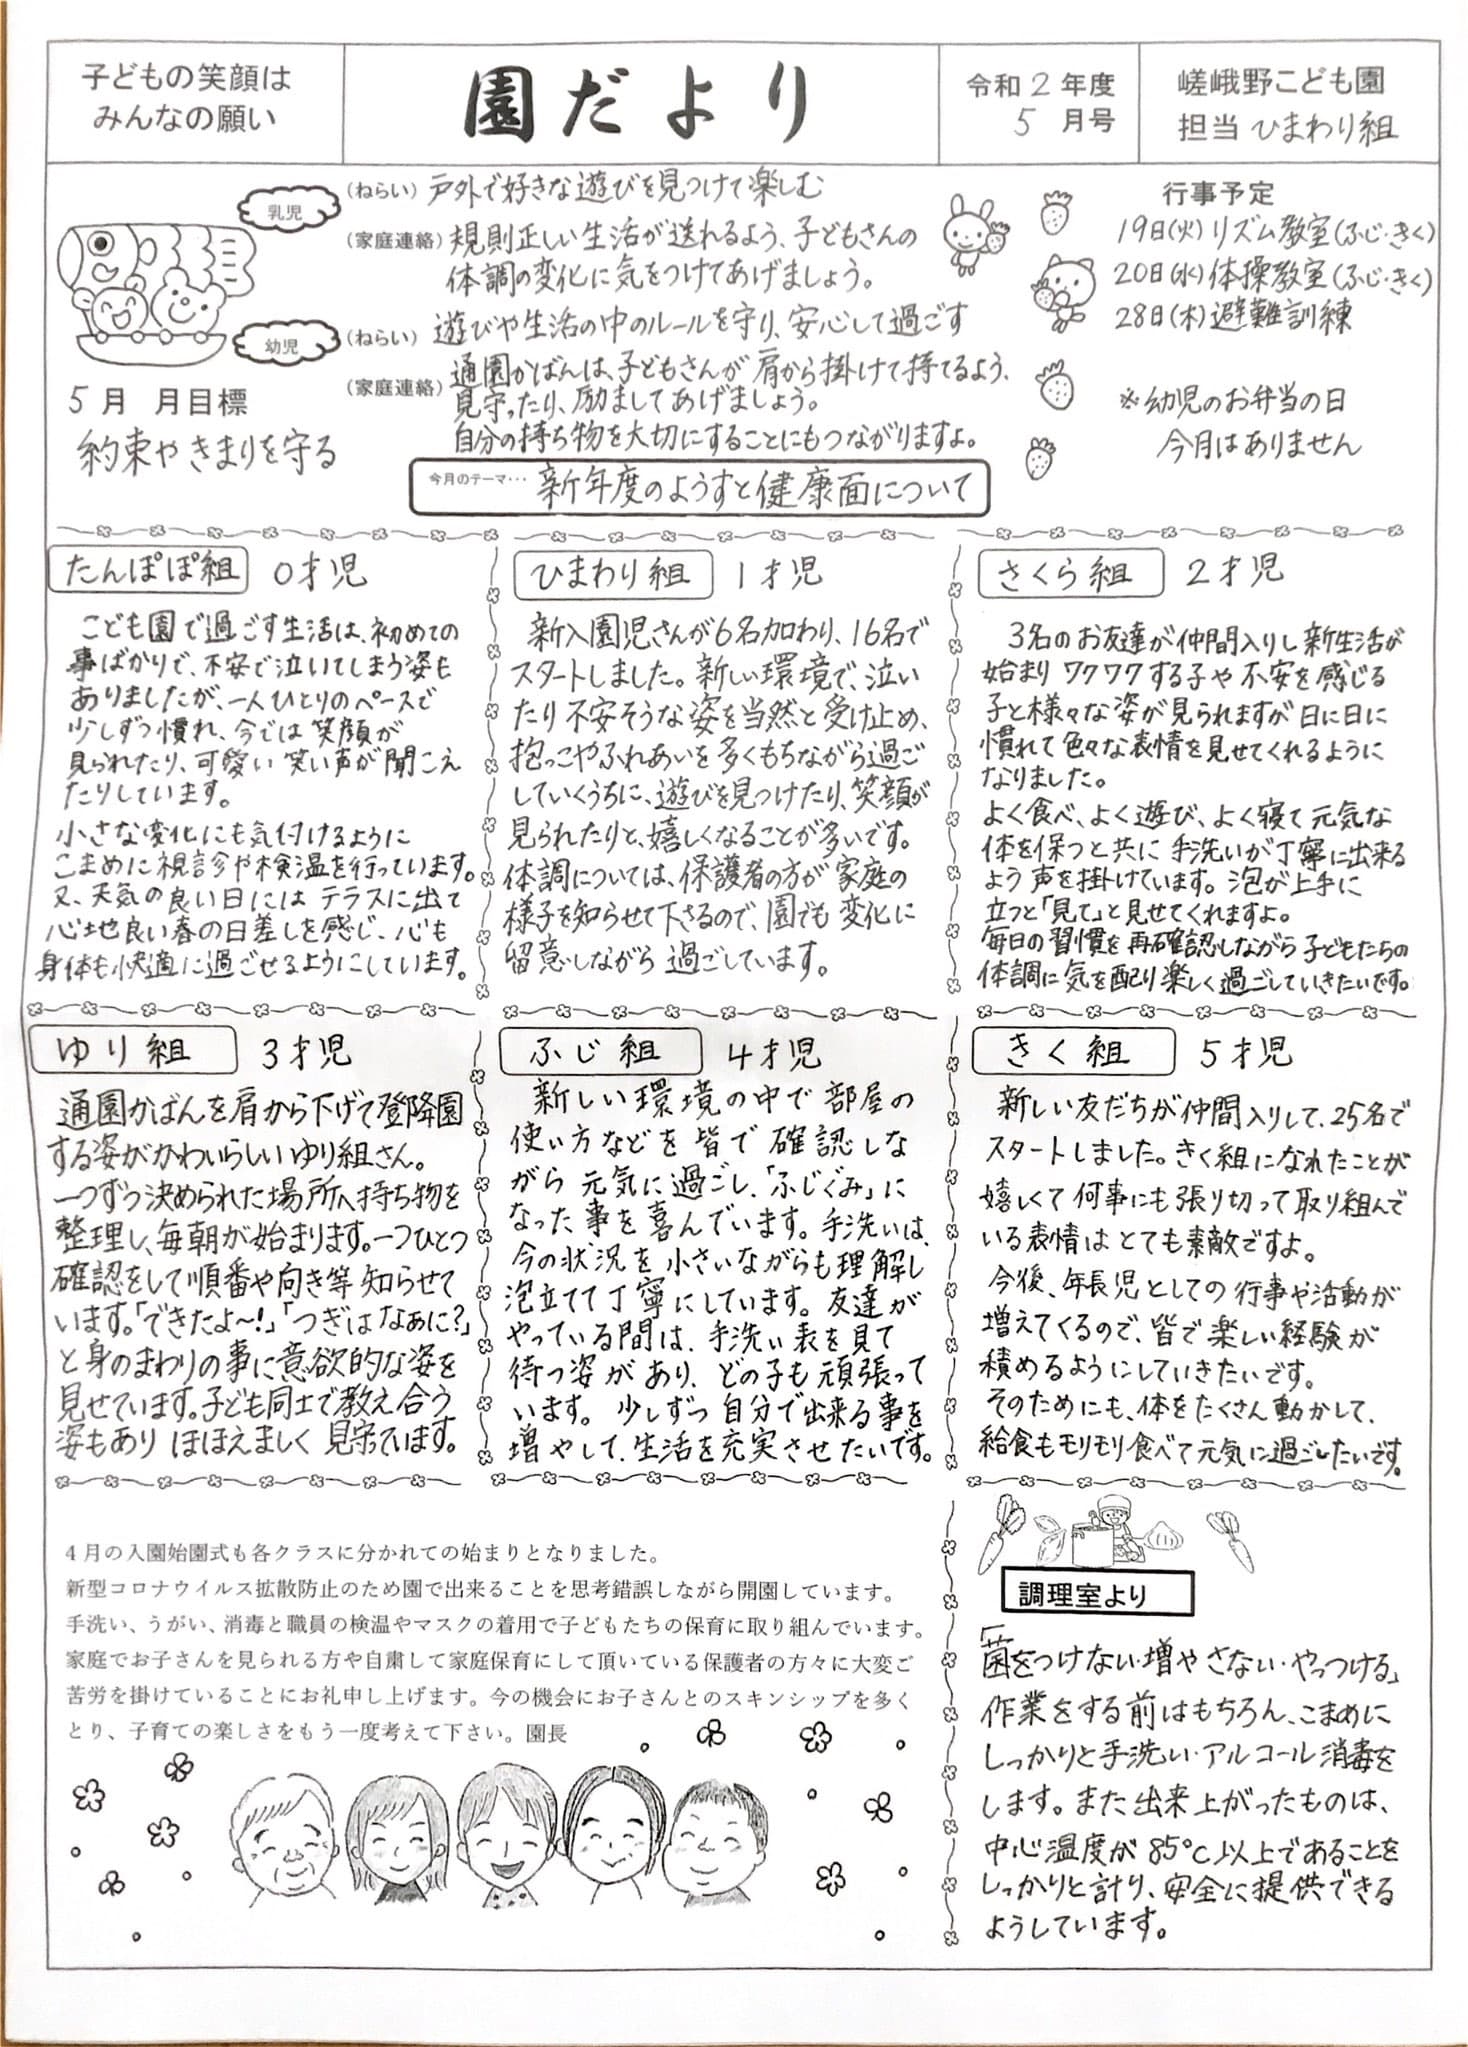 子どもの笑顔は
みんなの願い
園だより
令和2年度
5月号
嵯峨野こども園
担当 ひまわり組
乳児
(ねらい) 戸外で好きな遊びを見つけて楽しむ
(家庭連絡) 規則正しい生活が送れるよう、子どもさんの
体調の変化に気をつけてあげましょう。
幼児
(ねらい) 遊びや生活の中のルールを守り、安心して過ごす
(家庭連絡) 通園かばんは、子どもさんが肩から掛けて持てるよう、
見守ったり、励ましてあげましょう。
自分の持ち物を大切にすることにもつながりますよ。
5月 月目標
約束やきまりを守る
行事予定
19日(火)リズム教室(ふじ・きく)
20日(水)体操教室(ふじ・きく)
28日(木)避難訓練
※幼児のお弁当の日
今月はありません
今月のテーマ… 新年度のようすと健康面について
たんぽぽ組 0才児
こども園で過ごす生活は、初めての
事ばかりで、不安で泣いてしまう姿も
ありましたが、一人ひとりのペースで
少しずつ慣れ、今では笑顔が
見られたり、可愛い笑い声が聞こえ
たりしています。
小さな変化にも気付けるように
こまめに視診や検温を行っています。
又、天気の良い日にはテラスに出て
心地良い春の日差しを感じ、心も
身体も快適に過ごせるようにしています。
ひまわり組 1才児
新入園児さんが6名加わり、16名で
スタートしました。新しい環境で、泣い
たり不安そうな姿を当然と受け止め、
抱っこやふれあいを多くもちながら過ご
していくうちに、遊びを見つけたり、笑顔が
見られたりと、嬉しくなることが多いです。
体調については、保護者の方が家庭の
様子を知らせて下さるので、園でも変化に
留意しながら過ごしています。
さくら組 2才児
3名のお友達が仲間入りし新生活が
始まりワクワクする子や不安を感じる
子と様々な姿が見られますが日に日に
慣れて色々な表情を見せてくれるように
なりました。
よく食べ、よく遊び、よく寝て元気な
体を保つと共に手洗いが丁寧に出来る
よう声を掛けています。泡が上手に
立つと「見て」と見せてくれますよ。
毎日の習慣を再確認しながら子どもたちの
体調に気を配り楽しく過ごしていきたいです。
ゆり組 3才児
通園かばんを肩から下げて登降園
する姿がかわいらしいゆり組さん。
一つずつ決められた場所へ持ち物を
整理し、毎朝が始まります。一つひとつ
確認をして順番や向き等知らせて
います。「できたよ～!」「つぎはなぁに?」
と身のまわりの事に意欲的な姿を
見せています。子ども同士で教え合う
姿もありほほえましく見守ています。
ふじ組 4才児
新しい環境の中で部屋の
使い方などを皆で確認しな
がら元気に過ごし、「ふじぐみ」に
なった事を喜んでいます。手洗いは、
今の状況を小さいながらも理解し
泡立てて丁寧にしています。友達が
やっている間は、手洗い表を見て
待つ姿があり、どの子も頑張って
います。少しずつ自分で出来る事を
増やして、生活を充実させたいです。
きく組 5才児
新しい友だちが仲間入りして、25名で
スタートしました。きく組になれたことが
嬉しくて何事にも張り切って取り組んで
いる表情はとても素敵ですよ。
今後、年長児としての行事や活動が
増えてくるので、皆で楽しい経験が
積めるようにしていきたいです。
そのためにも、体をたくさん動かして、
給食もモリモリ食べて元気に過ごしたいです。
4月の入園始園式も各クラスに分かれての始まりとなりました。
新型コロナウイルス拡散防止のため園で出来ることを思考錯誤しながら開園しています。
手洗い、うがい、消毒と職員の検温やマスクの着用で子どもたちの保育に取り組んでいます。
家庭でお子さんを見られる方や自粛して家庭保育にして頂いている保護者の方々に大変ご
苦労を掛けていることにお礼申し上げます。今の機会にお子さんとのスキンシップを多く
とり、子育ての楽しさをもう一度考えて下さい。園長
調理室より
「菌をつけない・増やさない・やっつける」
作業をする前はもちろん、こまめに
しっかりと手洗い・アルコール消毒を
します。また出来上がったものは、
中心温度が85℃以上であることを
しっかりと計り、安全に提供できる
ようしています。